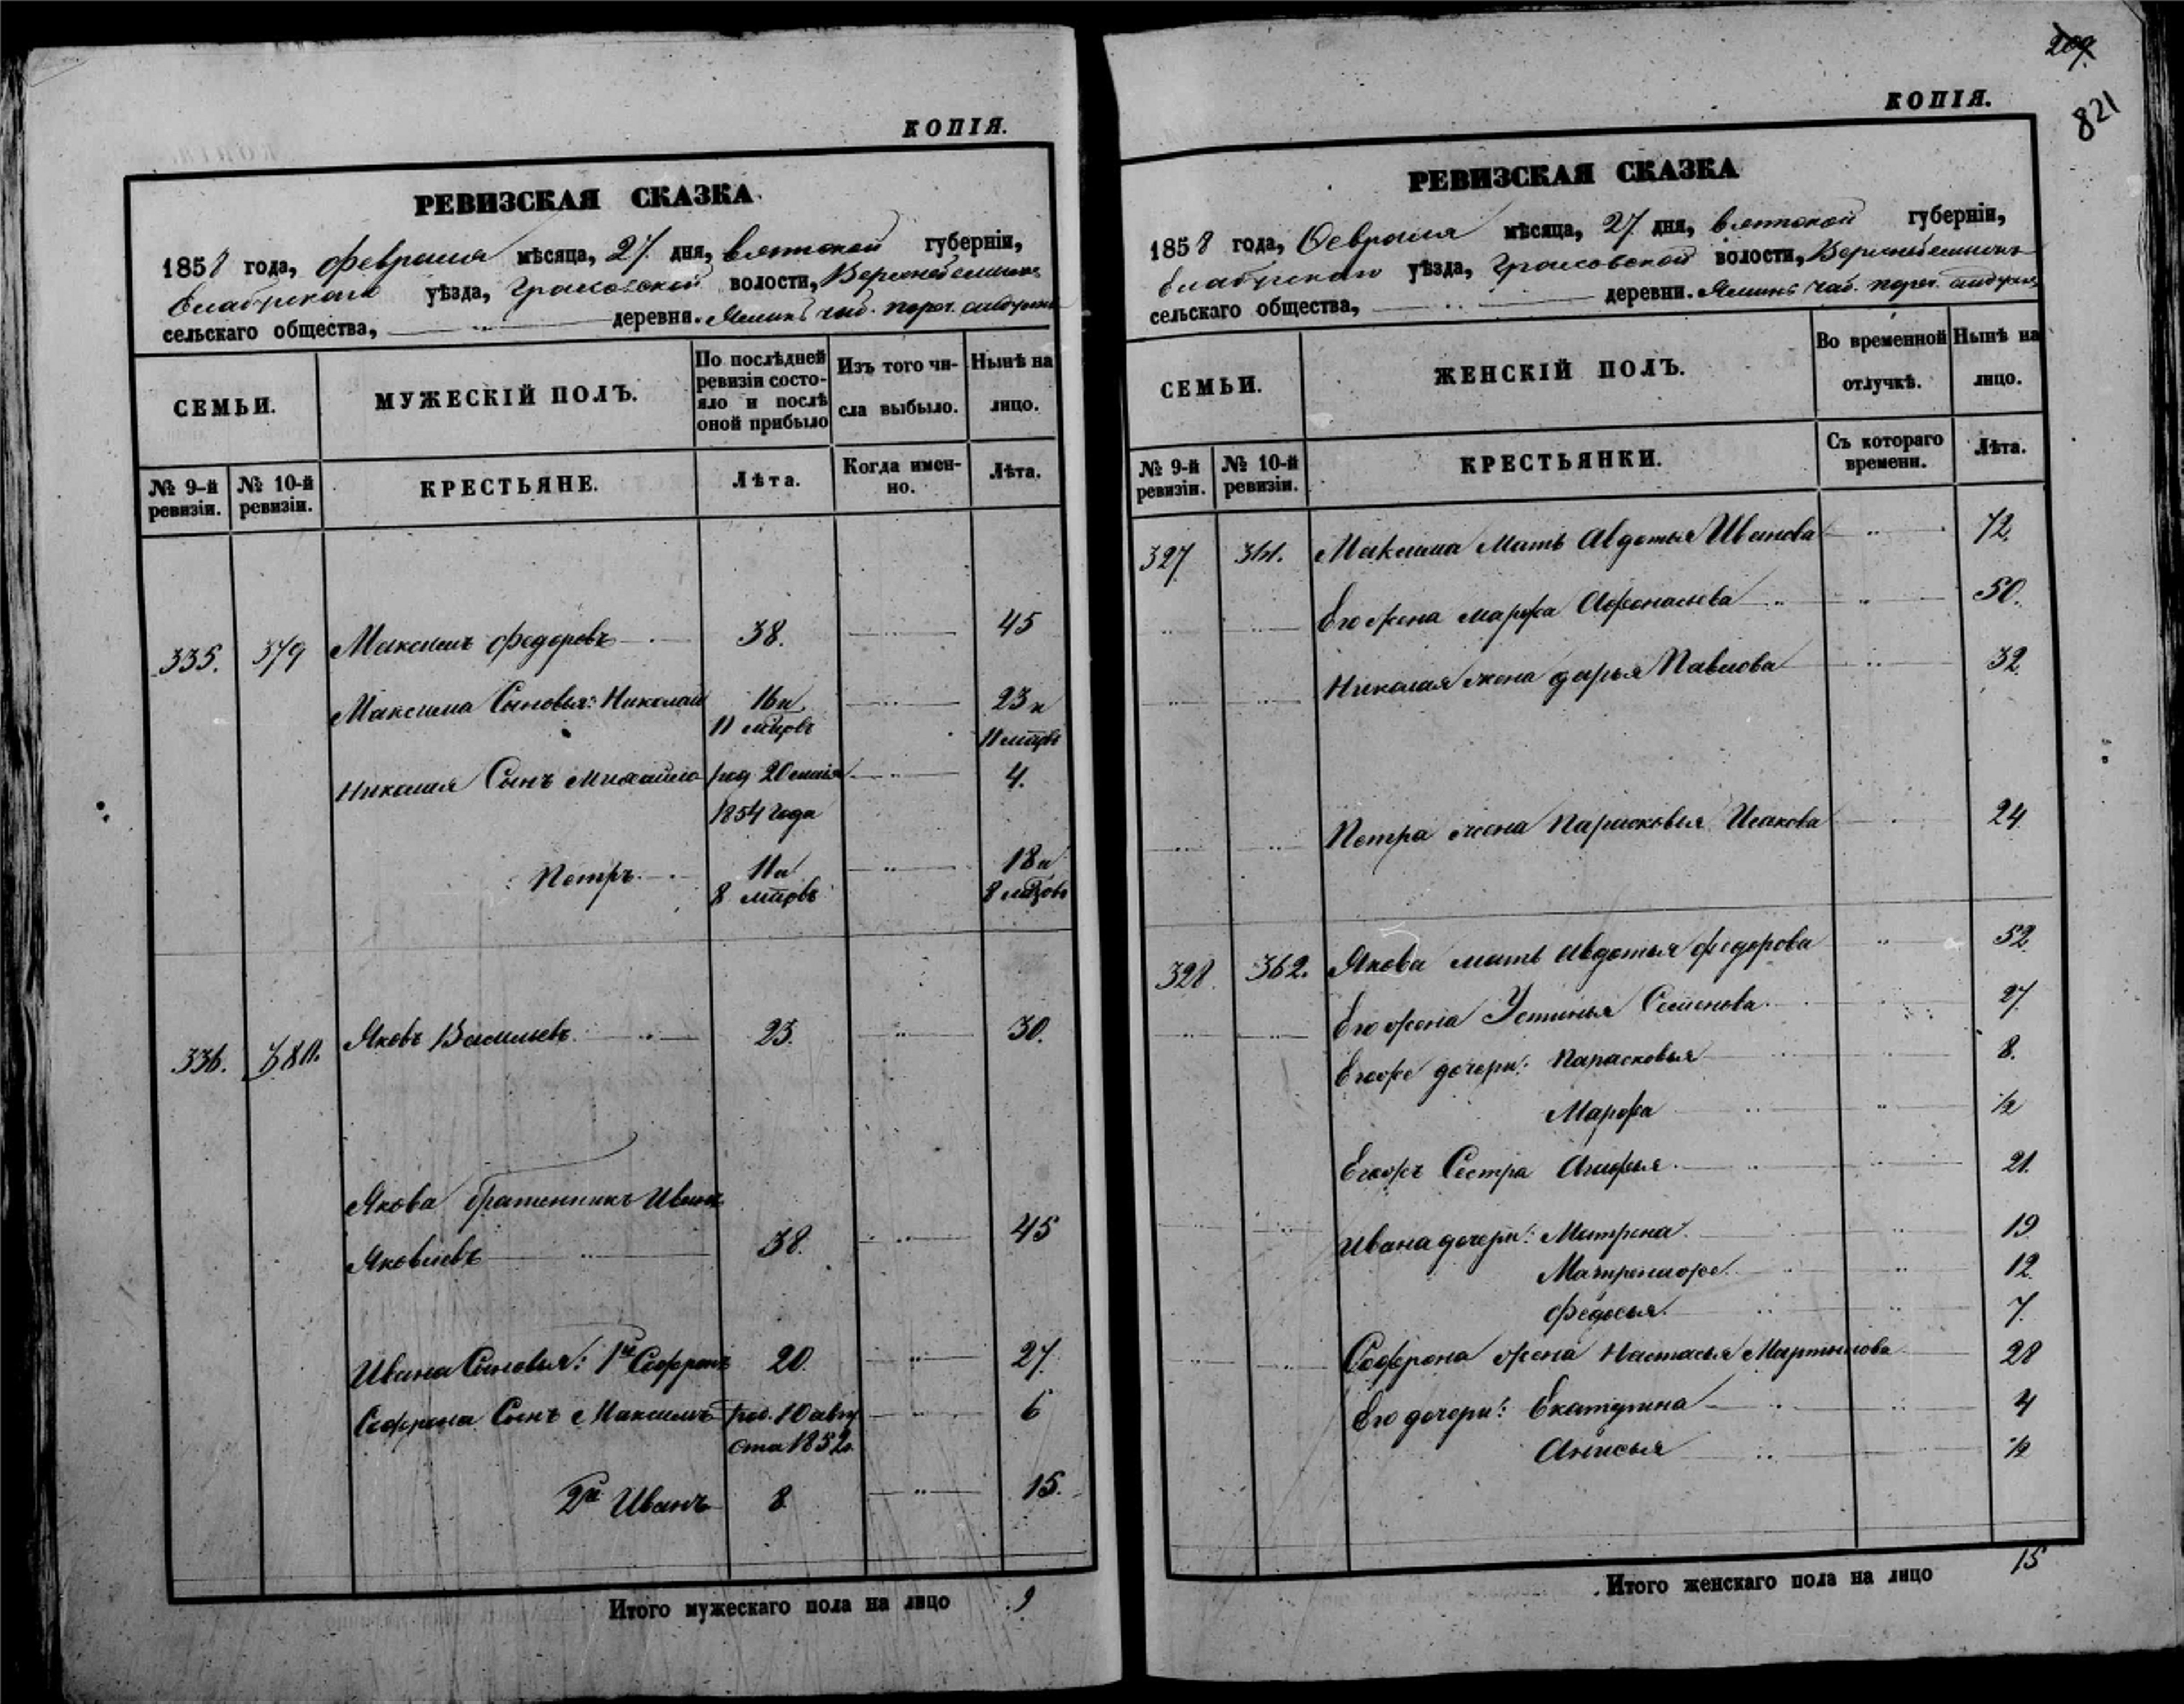 КОПІЯ.
РЕВИЗСКАЯ СКАЗКА
1858 года, февраля мѣсяца, 27 дня, Вятской губерніи,
Елабужскаго уѣзда, волости,
сельскаго общества, деревни.
СЕМЬИ.
МУЖЕСКІЙ ПОЛЪ.
По послѣдней ревизіи состояло и послѣ оной прибыло
Изъ того числа выбыло.
Нынѣ на лицо.
№ 9-й ревизіи.
№ 10-й ревизіи.
КРЕСТЬЯНЕ.
Лѣта.
Когда именно.
Лѣта.
335. 379 Максимъ Федоровъ 38. 45
Максима Сыновья: Николай 16 и 23 и
11 мцовъ 11 мцовъ
Николая Сынъ Михайло род. 20 4.
1854 года
Петръ 11 и 18 и
8 мцовъ 8 мцовъ
336. 380. Яковъ Васильевъ 23. 30.
Якова Братенникъ Иванъ
Яковлевъ 38. 45
Ивана Сыновья: 1й Софронъ 20. 27
Софрона Сынъ Максимъ род. 10 авгу 6
ста 1852
2й Иванъ 8 15.
Итого мужескаго пола на лицо 9
209
821
КОПІЯ.
РЕВИЗСКАЯ СКАЗКА
1858 года, Февраля мѣсяца, 27 дня, Вятской губерніи,
Елабужскаго уѣзда, волости,
сельскаго общества, деревни.
СЕМЬИ.
ЖЕНСКІЙ ПОЛЪ.
Во временной отлучкѣ.
Нынѣ на лицо.
№ 9-й ревизіи.
№ 10-й ревизіи.
КРЕСТЬЯНКИ.
Съ котораго времени.
Лѣта.
327 Максима Мать Авдотья Иванова 72.
Его жена Марфа Афонасьева 50.
Николая жена Дарья Павлова 32
Петра жена Парасковья Исакова 24
328. 362. Якова мать Авдотья Федорова 52.
Его жена Устинья Семенова 27
Егоже дочери: Парасковья 8.
Марфа ½
Егожъ Сестра Агафья 21.
Ивана дочери: Матрена 19
Матренаже 12.
Федосья 7.
Софрона жена Настасья Мартынова 28
Его дочери: Екатерина 4
Анисья ½
Итого женскаго пола на лицо 15